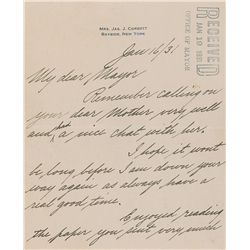 MRS. JAS. J. CORBETT
BAYSIDE, NEW YORK
RECEIVED
JAN 19 1931
OFFICE OF MAYOR
Jan 16/31
My dear Mayor
Remember calling on
your dear Mother, very well
and had a nice chat with her.
I hope it wont
be long before I am down your
way again as always have a
real good time.
Enjoyed reading
the paper you sent very much